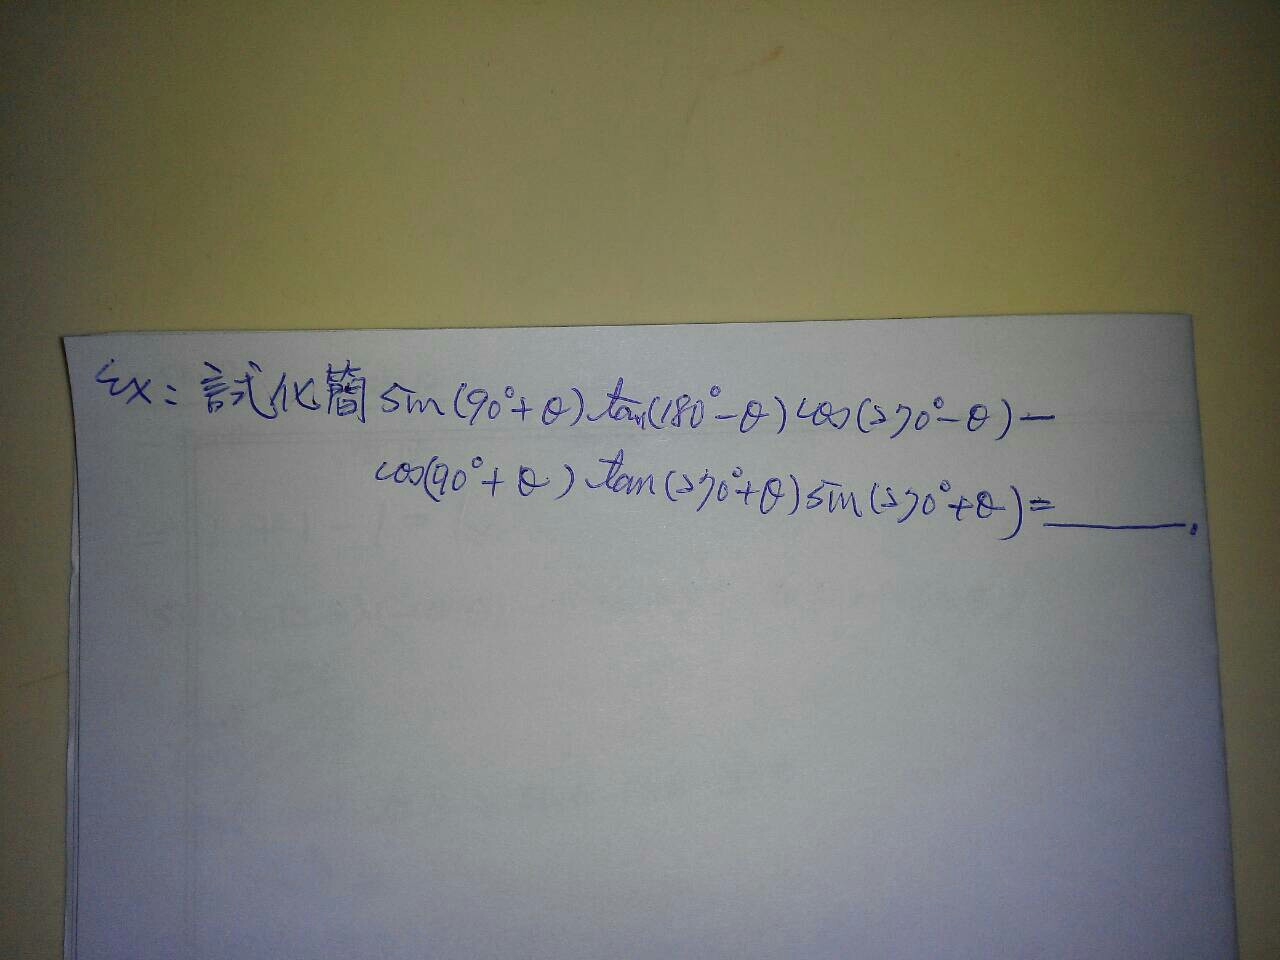 Ex：試化簡 sin(90°+θ) tan(180°-θ) cos(270°-θ) -
cos(90°+θ) tan(270°+θ) sin(270°+θ)=______.